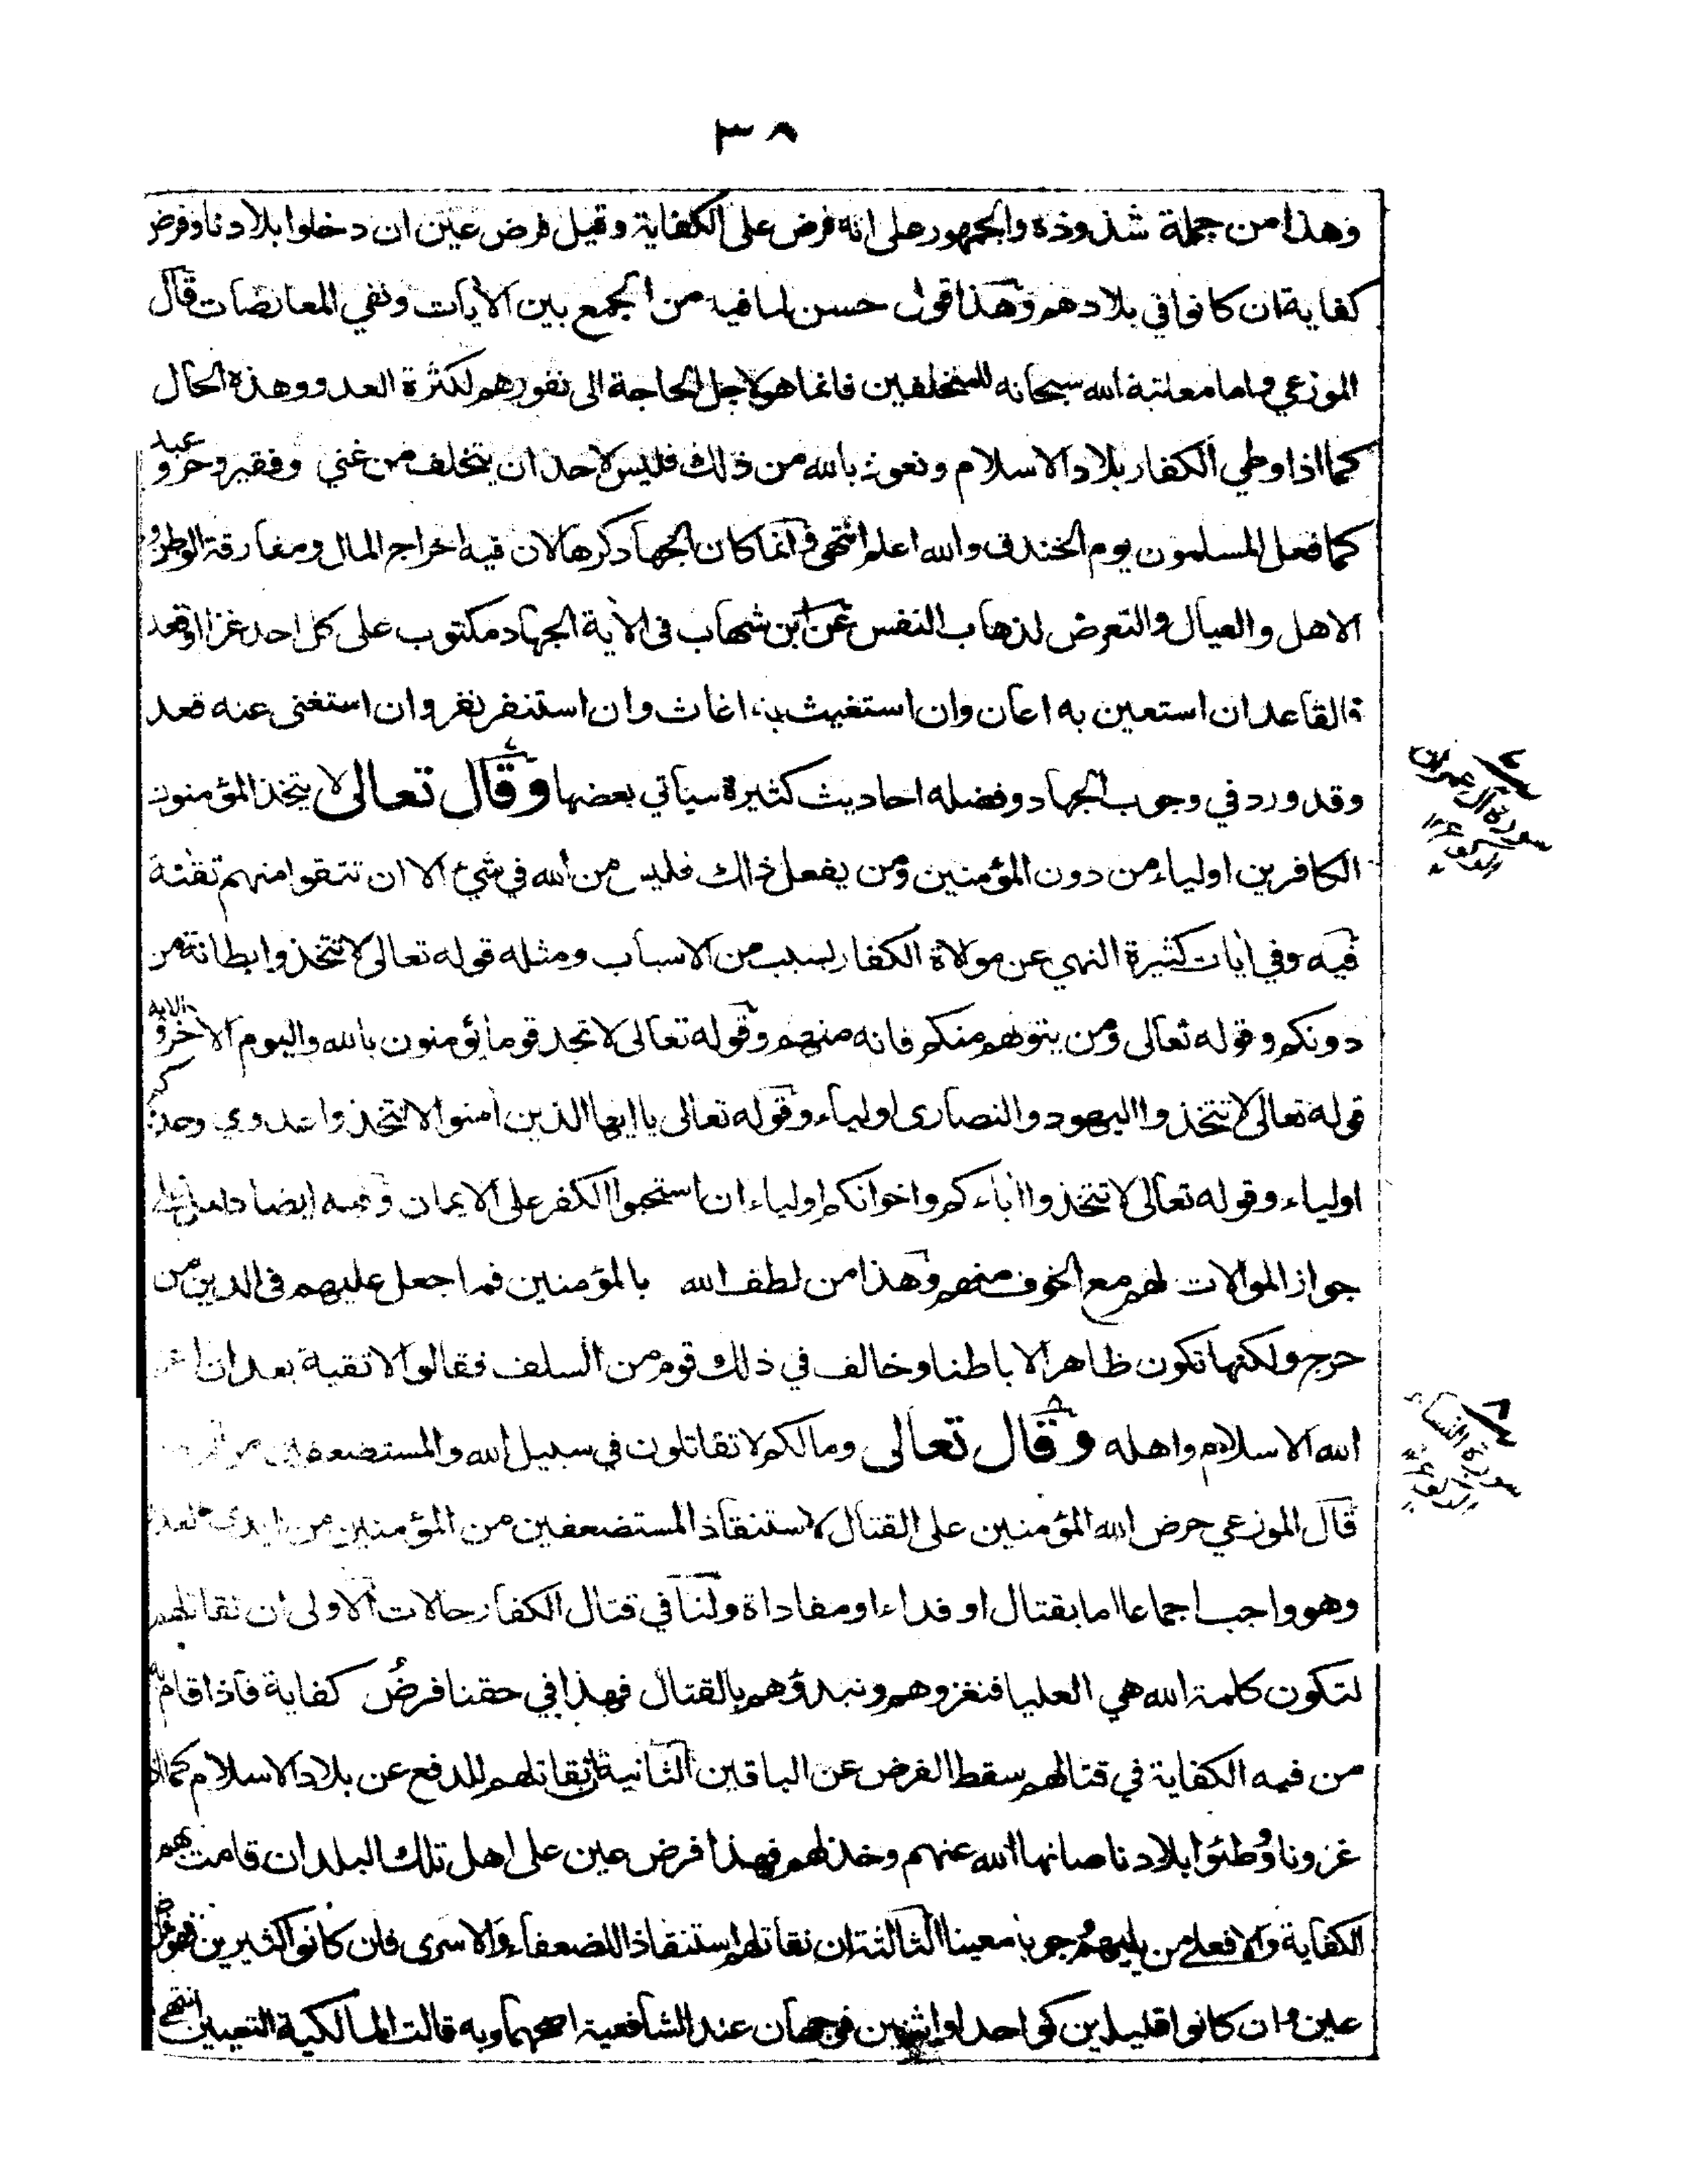 ٣٨
وهذا من جملة شذوذه والجمهور على انه فرض على الكفاية وقيل فرض عين ان دخلوا بلادنا وفرض
كفاية ان كانوا في بلادهم وهذا قول حسن لما فيه من الجمع بين الآيات ونفي المعارضات قال
الموزعي واما معاتبة الله سبحانه للمتخلفين فانما هو لاجل الحاجة الى نفورهم لكثرة العدو وهذه الحال
كما اذا وطي الكفار بلاد الاسلام ونعوذ بالله من ذلك فليس لاحد ان يتخلف من غني وفقير وحر وعبد
كما فعل المسلمون يوم الخندق والله اعلم انتهى وانما كان الجهاد كرها لان فيه اخراج المال ومفارقة الوطن و
الاهل والعيال والتعرض لذهاب النفس عن ابن شهاب فى الآية الجهاد مكتوب على كل احد غزا او قعد
فالقاعد ان استعين به اعان وان استغيث به اغاث وان استنفر نفر وان استغنى عنه قعد
وقد ورد في وجوب الجهاد وفضله احاديث كثيرة سيأتي بعضها وقال تعالى لا يتخذ المؤمنون
الكافرين اولياء من دون المؤمنين ومن يفعل ذالك فليس من الله في شيء الا ان تتقوا منهم تقئة
فيه وفي آيات كثيرة النهي عن مولاة الكفار لسبب من الاسباب ومثله قوله تعالى لا تتخذوا بطانة من
دونكم وقوله تعالى ومن يتولهم منكم فانه منهم وقوله تعالى لا تجد قوما يؤمنون بالله واليوم الآخر الآية و
قوله تعالى لا تتخذوا اليهود والنصارى اولياء وقوله تعالى يا ايها الذين آمنوا لا تتخذوا عدوي وعدوكم
اولياء وقوله تعالى لا تتخذوا آباءكم واخوانكم اولياء ان استحبوا الكفر على الايمان وفيه ايضا دليل على
جواز الموالات لهم مع الخوف منهم وهذا من لطف الله بالمؤمنين فما جعل عليهم فى الدين من
حرج ولكنها تكون ظاهرا لا باطنا وخالف في ذلك قوم من السلف فقالوا لا تقية بعد ان اعز
الله الاسلام واهله وقال تعالى ومالكم لا تقاتلون في سبيل الله والمستضعفين من
قال الموزعي حرض الله المؤمنين على القتال لاستنقاذ المستضعفين من المؤمنين من ايدي
وهو واجب اجماعا اما بقتال او فداء او مفاداة ولنا في قتال الكفار حالات الاولى ان نقاتلهم
لتكون كلمة الله هي العليا فنغزوهم ونبدؤهم بالقتال فهذا في حقنا فرض كفاية فاذا قام به
من فيه الكفاية في قتالهم سقط الفرض عن الباقين الثانية ان نقاتلهم للدفع عن بلاد الاسلام كما اذا
غزونا وطئوا بلادنا صانها الله عنهم وخذلهم فهذا فرض عين على اهل تلك البلد ان قامت بهم
الكفاية والا فعلى من يليهم وجوبا معينا الثالثة ان نقاتلهم استنقاذا للضعفاء والاسرى فان كانوا كثيرين فهو فرض
عين وان كانوا قليلين كواحد او اثنين فوجهان عند الشافعية اصحهما وبه قالت المالكية التعيين انتهى
سورة آل عمران
سورة النساء